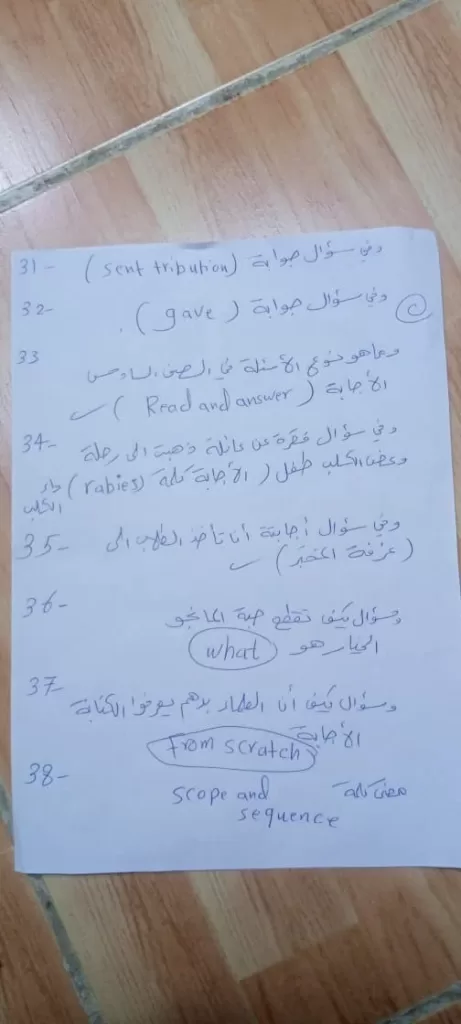 31- وفي سؤال جوابة (sent tribution)
32- وفي سؤال جوابة (gave).
33 وما هو نوع الأسئلة في الصف السادس
الأجابة (Read and answer)
34- وفي سؤال فقرة عن عائلة ذهبت الى رحلة
وعض الكلب طفل (الأجابة كلمة (rabies) داء الكلب
35- وفي سؤال أجابتة أنا تأخذ الطلاب الى
(غرفة المختبر)
36- وسؤال كيف تقطع حبة المانجو
الخيار هو what
37- وسؤال كيف أنا الطلاب بدهم يعرفوا الكتابة
الأجابة
From scratch
38- معنى كلمة scope and
sequence